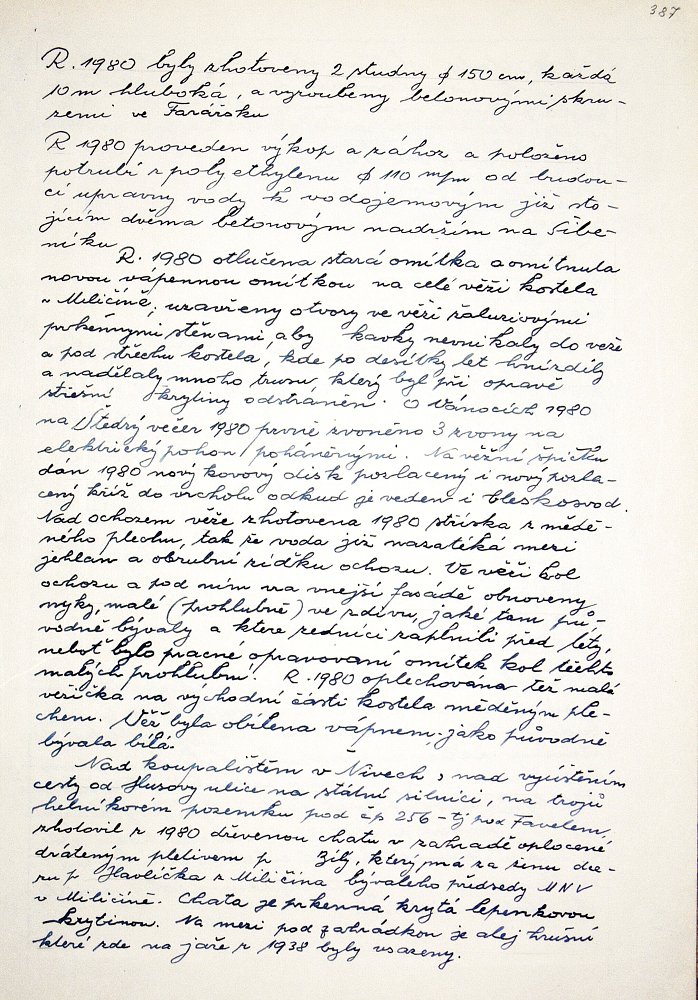 387
R. 1980 byly zhotoveny 2 studny ϕ 150 cm, každá
10 m hluboká, a vyroubeny betonovými skru-
žemi ve Farářsku
R 1980 proveden výkop a zához a položeno
potrubí z polyethylenu ϕ 110 mm od budou-
cí úpravny vody k vodojemovým již sto-
jícím dvěma betonovým nádržím na Šibe-
níku
R. 1980 otlučena stará omítka a omítnuta
novou vápennou omítkou na celé věži kostela
v Miličíně; uzavřeny otvory ve věži žaluziovými
prkennými stěnami, aby kavky nevnikaly do věže
a pod střechu kostela, kde po desítky let hnízdily
a nadělaly mnoho trusu, který byl při opravě
střešní krytiny odstraněn. O Vánocích 1980
na Štědrý večer 1980 prvně zvoněno 3 zvony na
elektrický pohon poháněnými. Na věžní špičku
dán 1980 nový kovový disk pozlacený i nový pozla-
cený kříž do vrcholu odkud je veden i bleskosvod.
Nad ochozem věže zhotovena 1980 stříška z mědě-
ného plechu, tak že voda již nezatéká mezi
jehlan a obrubní zídku ochozu. Ve věži kol
ochozu a pod ním na vnejší fasádě obnoveny
výky, malé (prohlubně) ve zdivu, jaké tam pů-
vodně bývaly a ktere zedníci zaplnili před léty,
neboť bylo pracné opravovaní omítek kol těchto
malých prohlubní. R. 1980 oplechována též malá
věžička na východní části kostela měděným ple-
chem. Věž byla obílena vápnem, jako původně
bývala bílá.
Nad koupalištěm v Nivech, nad vyústěním
cesty od Husovy ulice na státní silnici, na trojú
helníkovém pozemku pod čp 256 - tj pod Favelem,
zhotovil r 1980 dřevenou chatu v zahradě oplocené
drátěným pletivem p Bílý, který má za ženu dce-
ru p Havlíčka z Miličína bývalého předsedy MNV
v Miličíně. Chata je prkenná krytá lepenkovou
krytinou. Na mezi pod zahrádkou je alej hrušní
které zde na jaře r 1938 byly vsazeny.